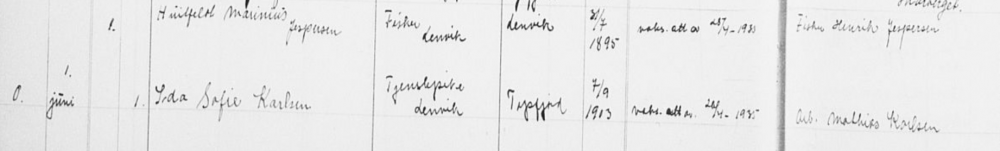 Huitfeldt Marinius Jespersen Fisker Lenvik Lenvik 21/7 1895 vaks. att. av 28/4 - 1935 Fisker Henrik Jespersen
1.
8. 1. juni 1. Inda Sofie Karlsen Tjenestepike Lenvik Topfjord 7/9 1903 vaks. att. av. 28/4 - 1935 Arb. Mathias Karlsen